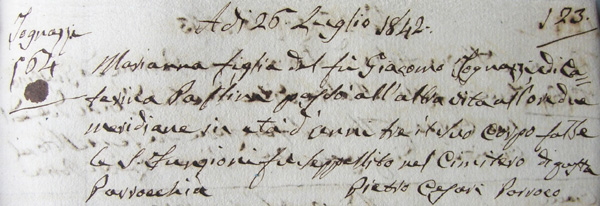 Adi 26. Luglio 1842.
123.
Tognazzi
164
Marianna figlia del fu Giacomo Tognazzi e di Ca=
terina passò all'altra vita all'ore due
meridiane in età d'anni tre il suo corpo fatte
le S. Funzioni fu seppellito nel Cimitero di questa
Parrocchia
Pietro Cesari Parroco